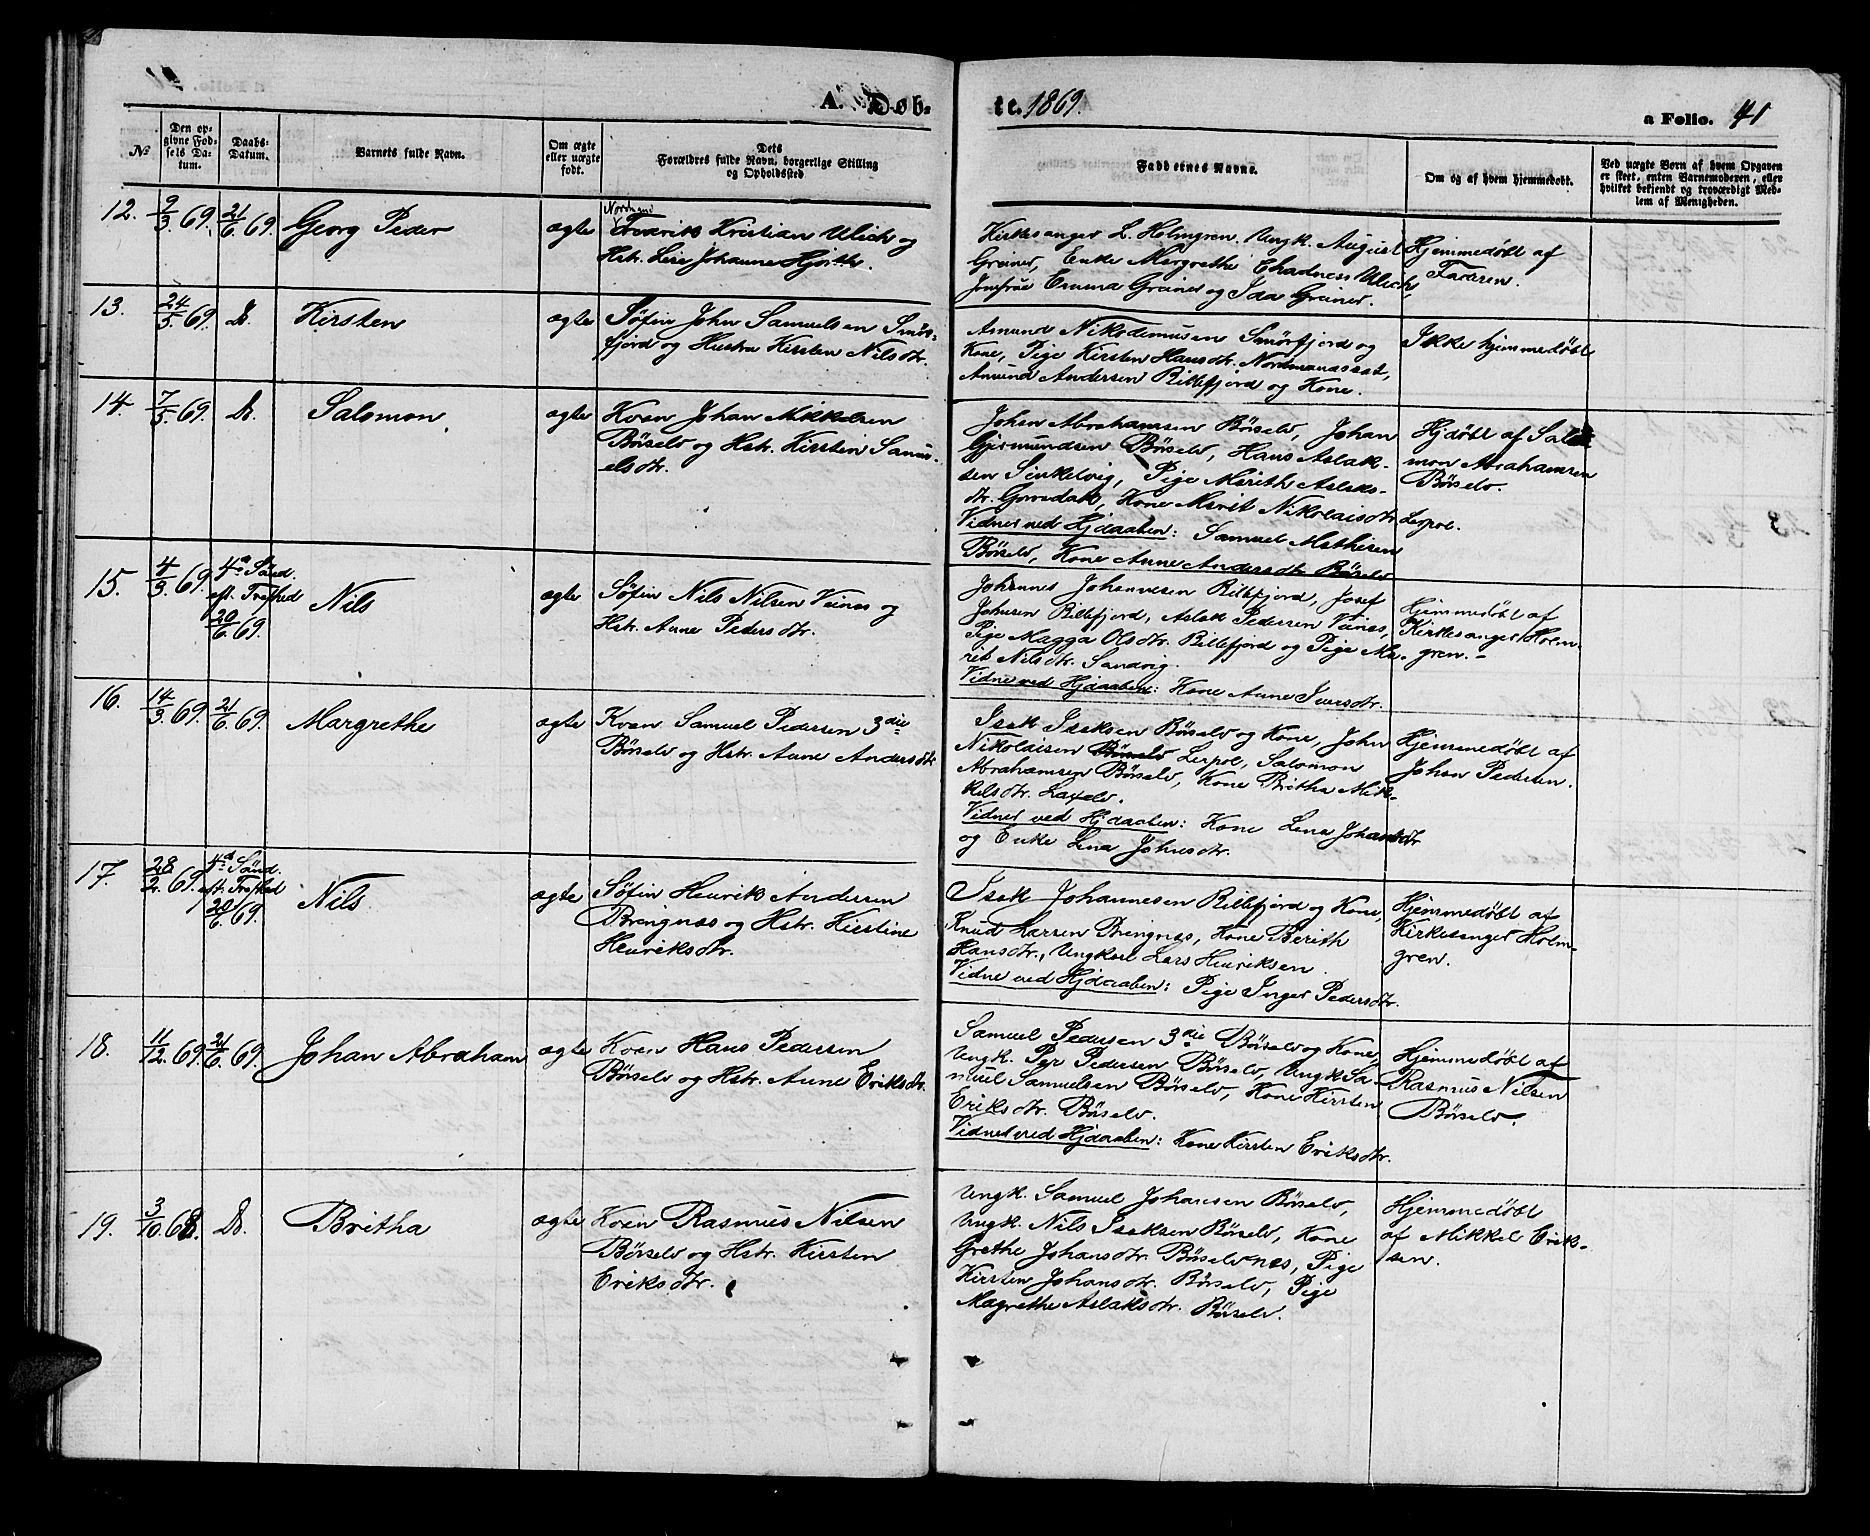 A. Døb-
te. 1869.
a Folio. 41
№
Den op-
givne Fød-
sels Da-
tum.
Daabs-
Datum.
Barnets fulde Navn.
Om ægte
eller uægte
født.
Dets
Forældres fulde Navn, borgerlige Stilling
og Opholdssted
Faddernes Navne.
Om og af hvem hjemmedøbt.
Ved uægte Børn af hvem Opgaven
er skeet, enten Barnemoderen, eller
hvilket bekjendt og troværdigt Med-
lem af Menigheden.
12. 9/3 69. 21/6 69. Georg Peder ægte
Nordmand
Fredrik Kristian Ulich og
Hstr. Lise Johanne Hjorth.
Kirkesanger L. Holmgren, Ungk. August
Greiner, Enke Margrethe Chadness Ulich,
Jomfrue Emma Greiner og Ida Greiner.
Hjemmedøbt af
Faderen.
13. 24/5 69. Do. Kirsten ægte
Søfin John Samuelsen Smör-
fjord og Hustru Kirsten Nilsdtr.
Amund Nikodemusen Smörfjord og
Kone, Pige Kirsten Hansdtr. Nordmanssat,
Amund Andersen Billefjord og Kone.
Ikke hjemmedøbt
14. 7/5 69. Do. Salomon. ægte
Kvæn Johan Mikkelsen
Börselv og Hstr. Kirsten Samu-
elsdtr.
Johan Abrahamsen Börselv, Johan
Gjermundsen Börselv, Hans Aslak-
sen Sinkelvig, Pige Marith Aslaks-
dtr. Goredak, Kone Marit Nikolaisdtr. Lerpol.
Vidner ved Hjdaaben: Samuel Mathisen
Börselv, Kone Anne Andersdtr. Börselv
Hjdøbt af Salo-
mon Abrahamsen
Börselv.
15. 4/3 69. 4de Sönd.
eft. Trefhed
20/6 69. Nils ægte
Söfin Nils Nilsen Veines og
Hstr. Anne Pedersdtr.
Johannes Johannesen Billefjord, Josef
Johnsen Billefjord, Aslak Pedersen Veines,
Pige Magga Olsdtr. Billefjord og Pige Ma-
rit Nilsdtr. Sandvig.
Vidne ved Hjdaaben: Kone Anne Iversdtr.
Hjemmedøbt af
Kirkesanger Holm-
gren. -
16. 14/3 69. 21/6 69. Margrethe ægte
Kvæn Samuel Pedersen 3die
Börselv og Hstr. Anne Andersdtr
Isak Isaksen Börselv og Kone, John
Nikolaisen Börselv Lerpol, Salomon
Abrahamsen Börselv, Kone Britha Mik-
kelsdtr. Laxelv.
Vidner ved Hjdaaben: Kone Lena Johansdtr
og Enke Lena Johnsdtr.
Hjemmedøbt af
Johan Pedersen.
17. 28/2 69. 4de Sönd.
eft. Trefhed
20/6 69. Nils ægte
Söfin Henrik Andersen
Brengnæs og Hstr. Kirstine
Henriksdtr.
Isak Johannesen Billefjord og Kone,
Knud Larsen Brengnæs, Kone Berith
Hansdtr., Ungkarl Lars Henriksen.
Vidne ved Hjdaaben: Pige Inger Pedersdtr.
Hjemmedøbt af
Kirkesanger Holm-
gren.
18. 11/12 69. 21/6 69. Johan Abraham ægte
Kvæn Hans Pedersen
Börselv og Hstr. Anne Eriksdtr.
Samuel Pedersen 3die Börselv og Kone,
Ungk. Per Pedersen Börselv, Ungk Sa-
muel Samuelsen Börselv, Kone Kirsten
Eriksdtr. Börselv.
Vidner ved Hjdaaben: Kone Kirsten Eriksdtr.
Hjemmedøbt af
Rasmus Nilsen
Börselv.
19. 3/10 68. Do. Britha ægte
Kvæn Rasmus Nilsen
Börselv og Hstr. Kirsten
Eriksdtr.
Ungk. Samuel Johansen Börselv,
Ungk. Nils Isaksen Börselv, Kone
Grethe Johansdtr. Börselvnes, Pige
Kirsten Johansdtr. Börselv, Pige
Magrethe Aslaksdtr. Börselv.
Hjemmedøbt
af Mikkel Erik-
sen.